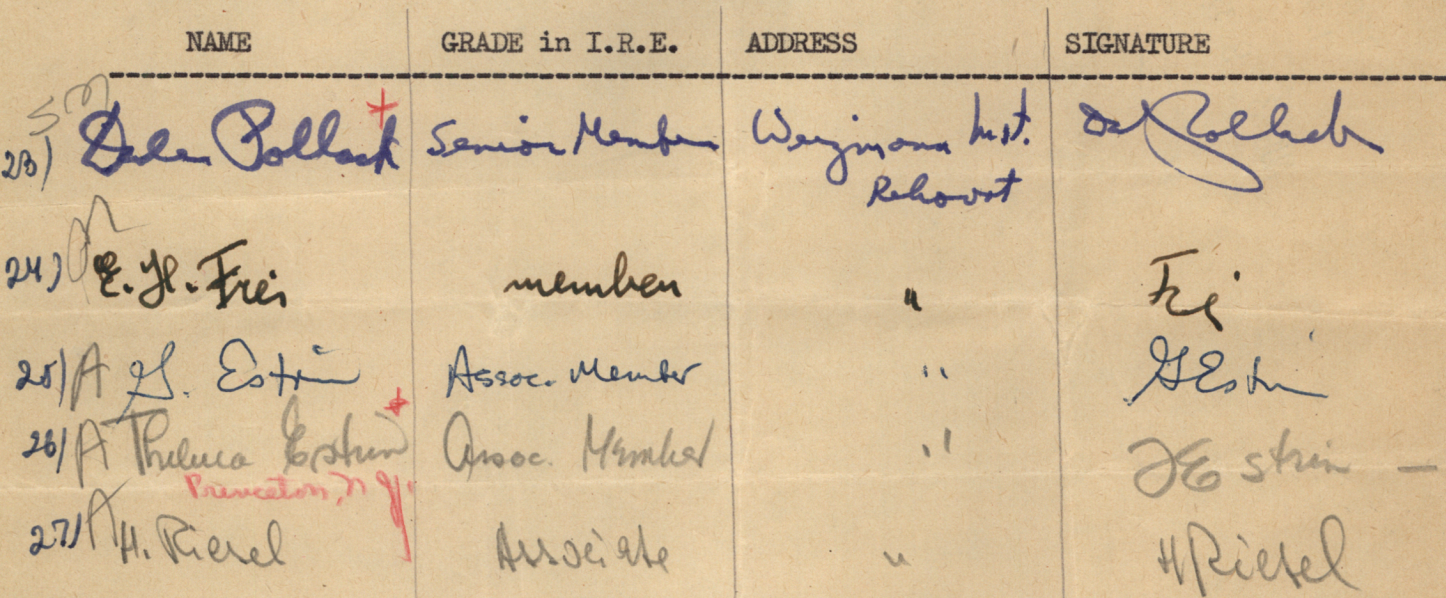 NAME GRADE in I.R.E. ADDRESS SIGNATURE
SM
23) Pollack + Senior Member Weizmann Inst. Pollack
Rehovot
24) M E. H. Frei member " Frei
25) A G. Estrin Assoc. Member " GEstrin
26) A Thelma Estrin + Assoc. Member " TEstrin —
Princeton, N.J.
27) A H. Riesel Associate " H Riesel